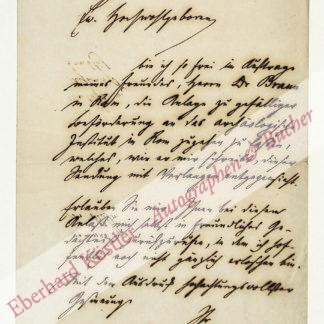 Ew. Hochwohlgeboren
bin ich so frei im Auftrage
meines Freundes, Herrn Dr Braun
in Rom, die Anlage zu gefälliger
Beförderung an das archäologische
Institut in Rom zugehen zu
welches, wie er mir schreibt, dieser
Sendung mit Verlangen entgegensieht.
Erlauben Sie mir, daß bei diesem
Anlaß mich selbst in freundliches Ge-
in dem ich hof-
noch nicht gänzlich erloschen bin.
Mit dem Ausdruck hochachtungsvollster
Gesinnung
Eberhard Köstler Autographen & Bücher